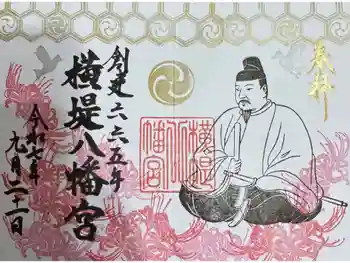 奉拝
創建六六五年
横堤八幡宮
令和六年
九月二十一日
横堤
八幡宮